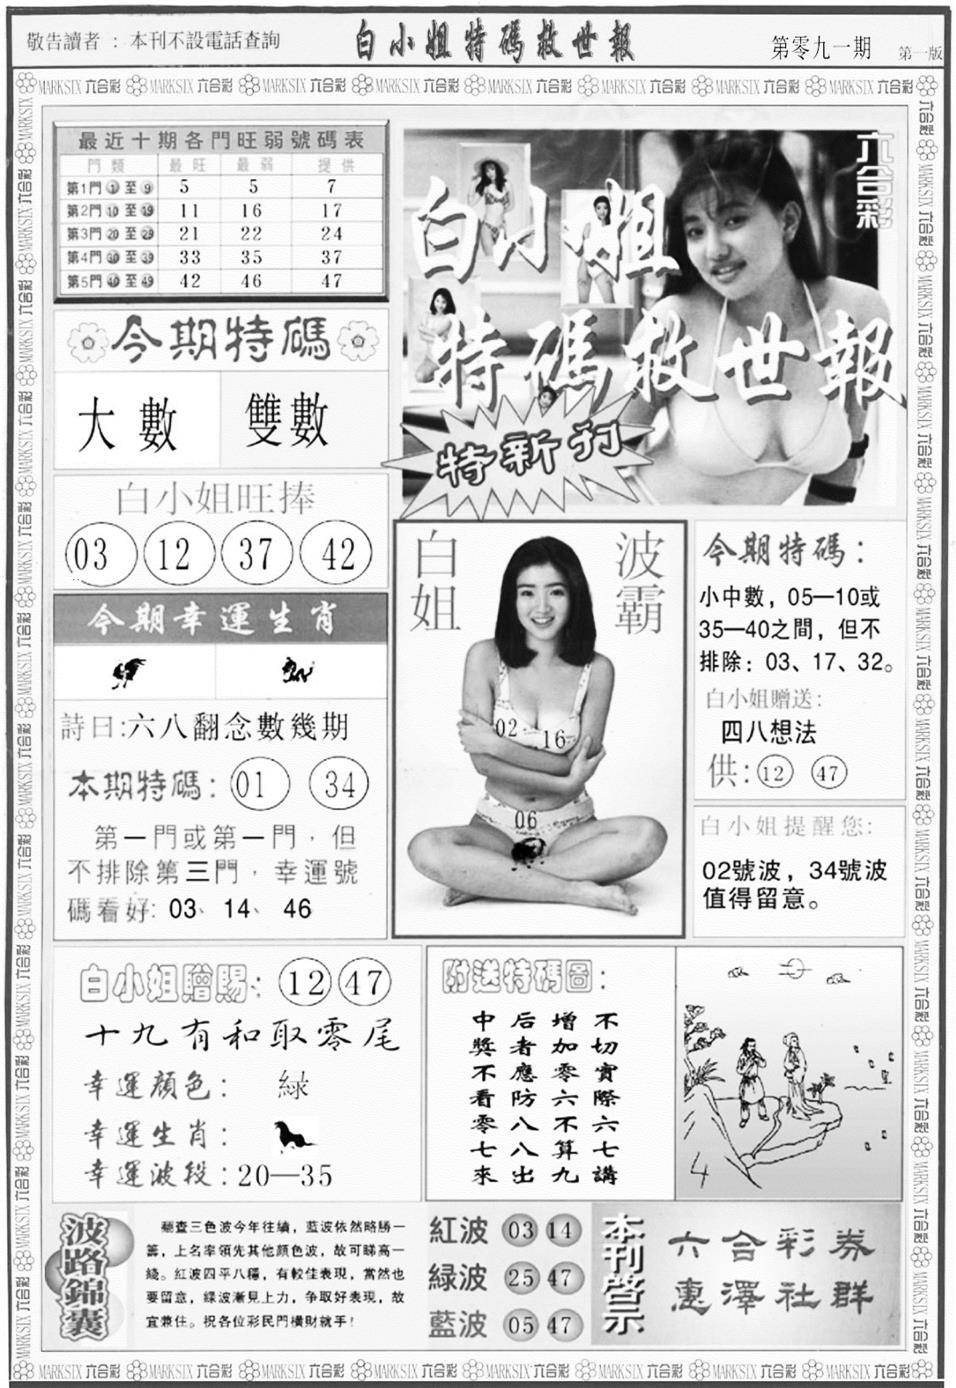 敬告讀者 ：本刊不設電話查詢
白小姐特碼救世報
第零九一期
第一版
MARKSIX 六合彩
最近十期各門旺弱號碼表
門類 最旺 最弱 提供
第1門 1 至 9 5 5 7
第2門 10 至 19 11 16 17
第3門 20 至 29 21 22 24
第4門 30 至 39 33 35 37
第5門 40 至 49 42 46 47
六合彩
白小姐
特碼救世報
特新刊
今期特碼
大數 雙數
白小姐旺捧
03 12 37 42
今期幸運生肖
詩曰:六八翻念數幾期
本期特碼: 01 34
第一門或第一門，但
不排除第三門，幸運號
碼看好: 03、14、46
白姐
波霸
02 16
06
今期特碼：
小中數，05—10或
35—40之間，但不
排除：03、17、32。
白小姐贈送:
四八想法
供: 12 47
白小姐提醒您:
02號波，34號波
值得留意。
白小姐贈賜: 12 47
十九有和取零尾
幸運顔色： 緑
幸運生肖：
幸運波段:20—35
附送特碼圖：
不切實際六七講
增加零六不算九
后者應防八八出
中獎不看零七來
4
波路錦囊
聽查三色波今年往績，藍波依然略勝一
籌，上名率領先其他顏色波，故可睇高一
綫。紅波四平八穩，有較佳表現，當然也
要留意，緑波漸見上力，争取好表現，故
宜兼住。祝各位彩民門橫財就手！
紅波 03 14
緑波 25 47
藍波 05 47
本刊啓示
六合彩券
惠澤社群